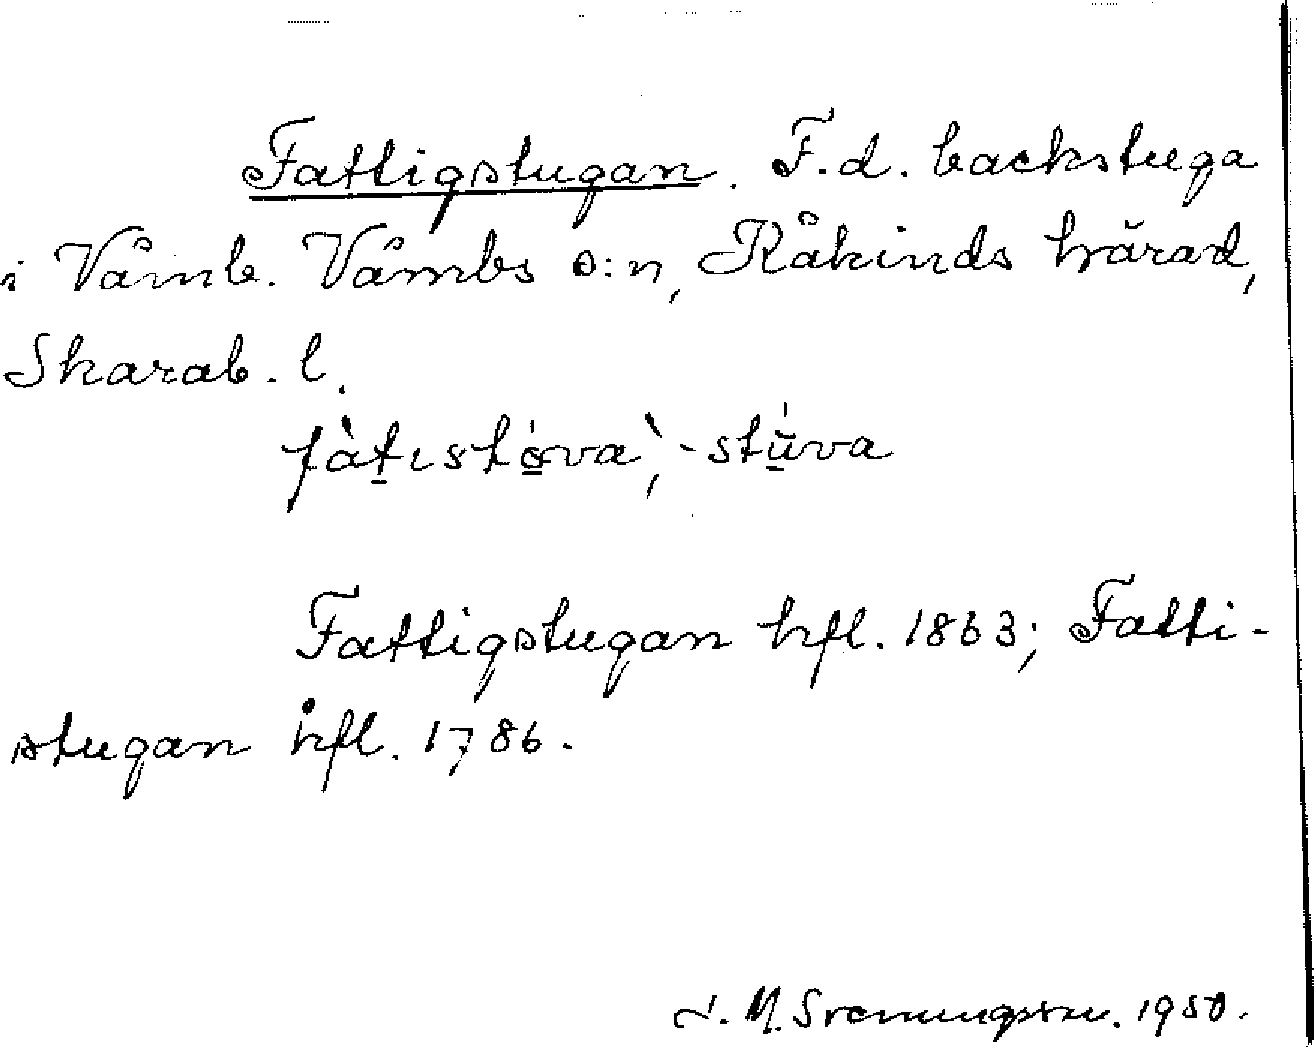 Fattigstugan. F.d. backstuga
i Våmb. Våmbs s:n, Kåkinds härad,
Skarab. l.
fàtıstóva, -stúva
Fattigstugan hfl. 1863; Fatti-
stugan hfl. 1786.
J. M. Svenningson. 1950.